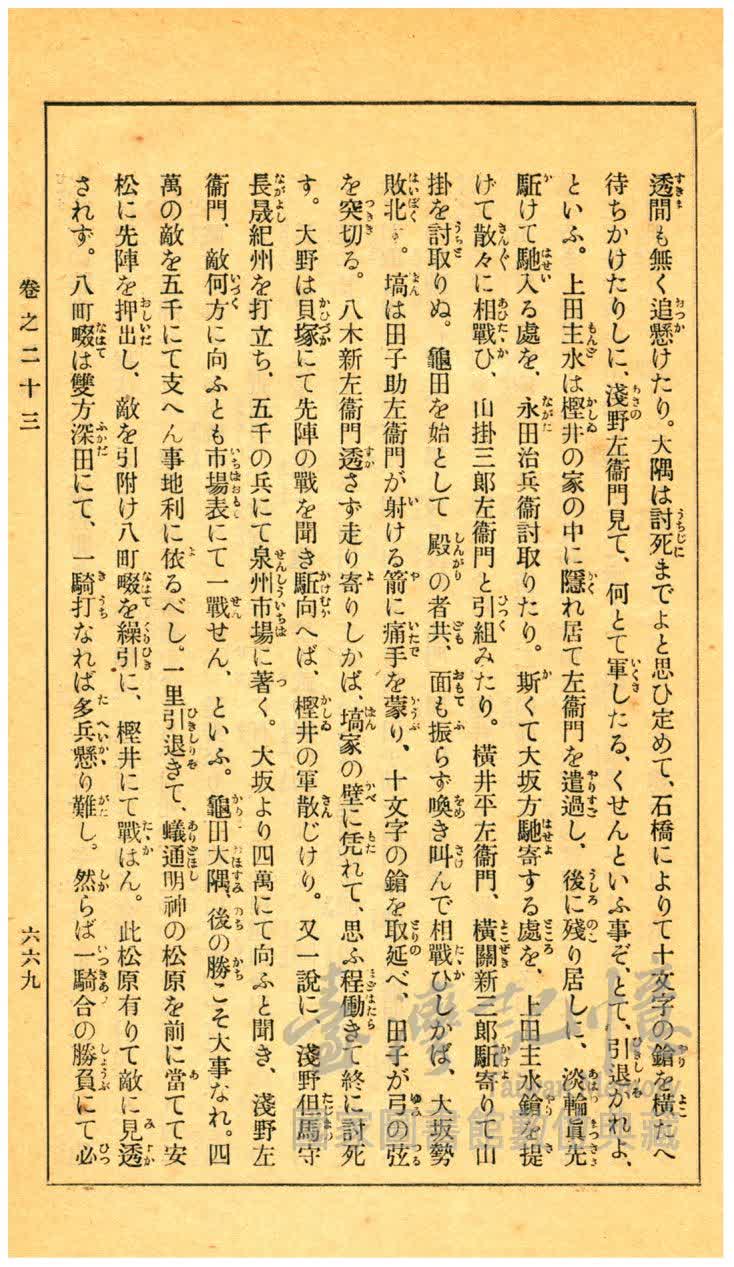 透間も無く追懸けたり。大隅は討死までよと思ひ定めて、石橋によりて十文字の鎗を橫たへ
待ちかけたりしに、淺野左衞門見て、何とて軍したる、くせんといふ事ぞ、とて、引退かれよ、
といふ。上田主水は樫井の家の中に隱れ居て左衞門を遣過し、後に殘り居しに、淡輪眞先
駈けて馳入る處を、永田治兵衞討取りたり。斯くて大坂方馳寄する處を、上田主水鎗を提
げて散々に相戰ひ、山掛三郎左衞門と引組みたり。橫井平左衞門、橫關新三郎駈寄りて山
掛を討取りぬ。龜田を始として殿の者共、面も振らず喚き叫んで相戰ひしかば、大坂勢
敗北す。塙は田子助左衞門が射ける箭に痛手を蒙り、十文字の鎗を取延べ、田子が弓の弦
を突切る。八木新左衞門透さず走り寄りしかば、塙家の壁に凭れて、思ふ程働きて終に討死
す。大野は貝塚にて先陣の戰を聞き駈向へば、樫井の軍散じけり。又一說に、淺野但馬守
長晟紀州を打立ち、五千の兵にて泉州市場に著く。大坂より四萬にて向ふと聞き、淺野左
衞門、敵何方に向ふとも市場表にて一戰せん、といふ。龜田大隅、後の勝こそ大事なれ。四
萬の敵を五千にて支へん事地利に依るべし。一里引退きて、蟻通明神の松原を前に當てて安
松に先陣を押出し、敵を引附け八町畷を繰引に、樫井にて戰はん。此松原有りて敵に見透
されず。八町畷は雙方深田にて、一騎打なれば多兵懸り難し。然らば一騎合の勝負にて必
卷之二十三
六六九
國家圖書館數位典藏